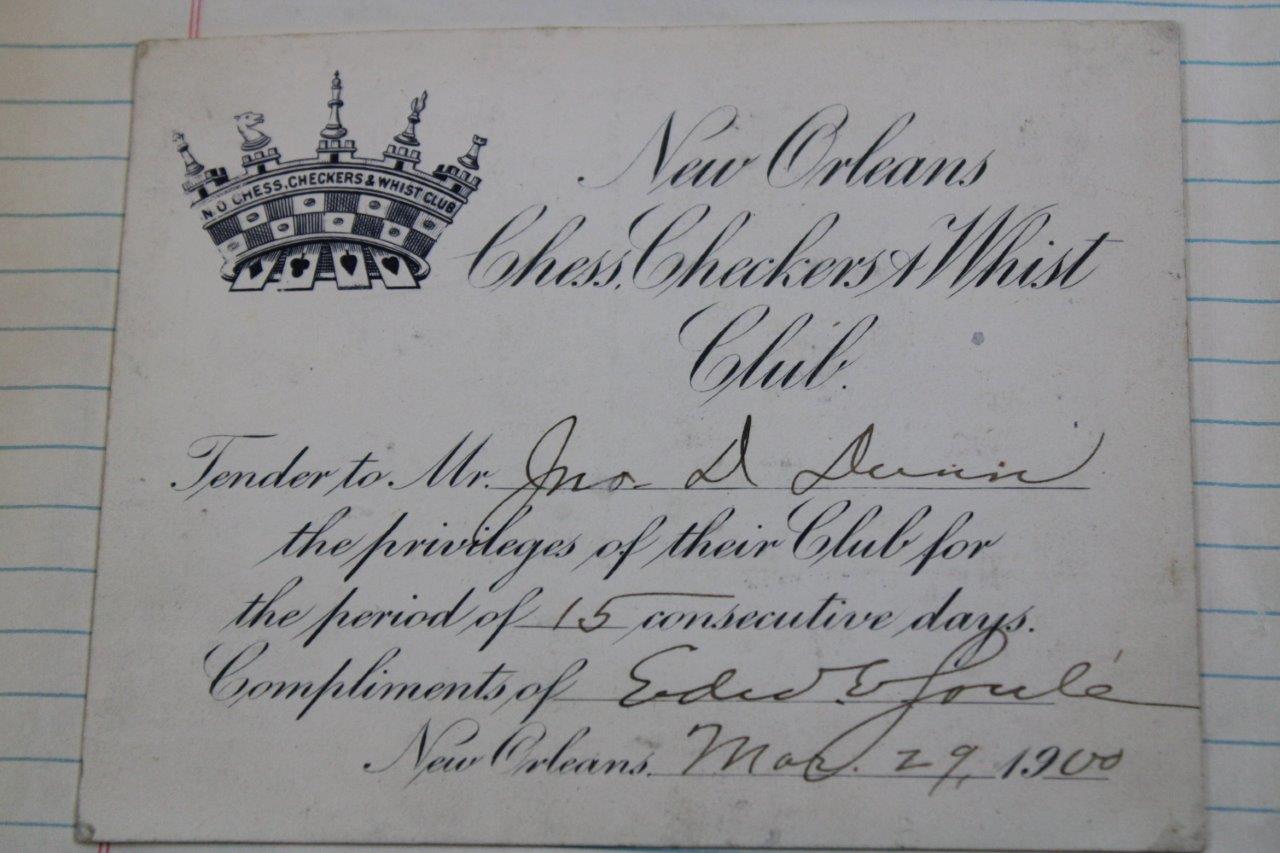 N.O. CHESS, CHECKERS & WHIST CLUB
New Orleans
Chess, Checkers & Whist
Club.
Tender to Mr. Jno. D Dunn
the privileges of their Club for
the period of 15 consecutive days.
Compliments of Edw. E Soulé
New Orleans, Mar. 29, 1900